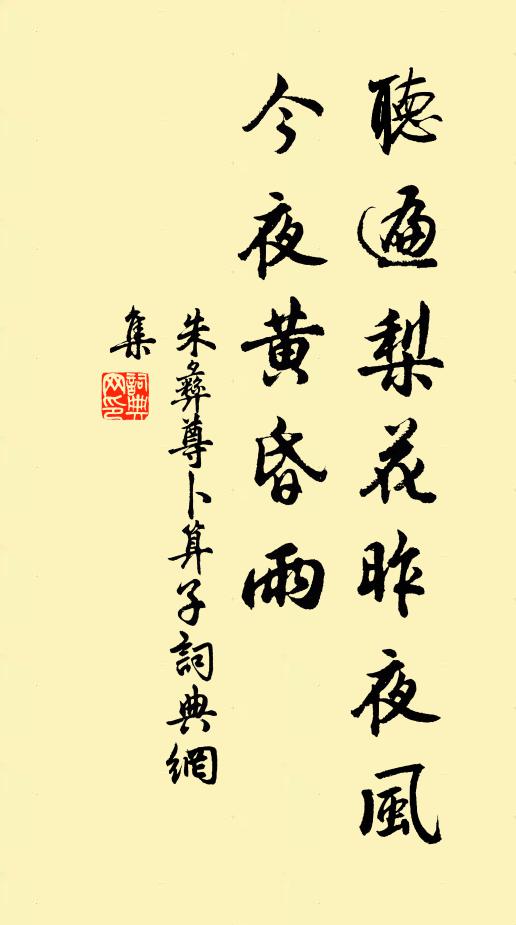 聽遍梨花昨夜風
今夜黄昏雨
朱彝尊卜算子詞典網
集
詞典
网印